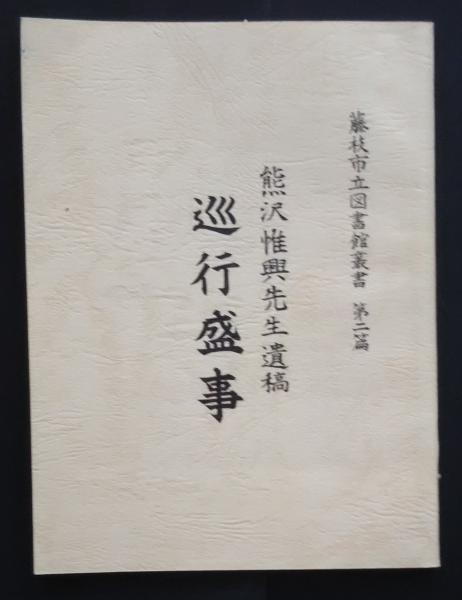 藤枝市立図書館叢書 第二篇
熊沢惟興先生遺稿
巡行盛事